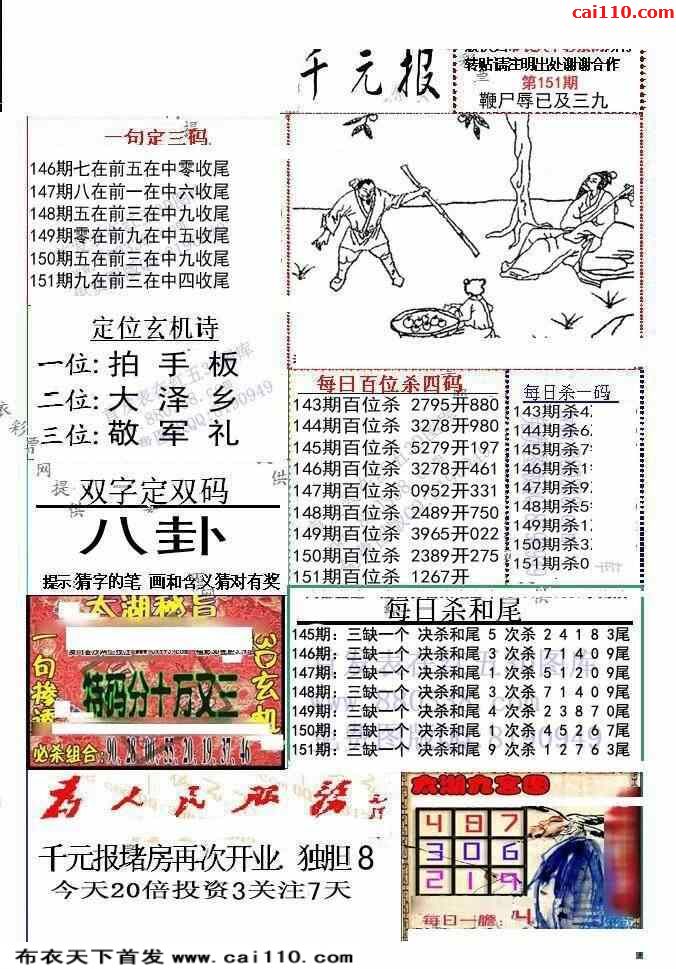 cai110.com
千元报
转贴请注明出处谢谢合作
第151期
鞭尸辱已及三九
一句定三码
146期七在前五在中零收尾
147期八在前一在中六收尾
148期五在前三在中九收尾
149期零在前九在中五收尾
150期五在前三在中九收尾
151期九在前三在中四收尾
定位玄机诗
一位: 拍 手 板
二位: 大 泽 乡
三位: 敬 军 礼
双字定双码
八卦
提示:猜字的笔 画和含义猜对有奖
每日百位杀四码
143期百位杀 2795开880
144期百位杀 3278开980
145期百位杀 5279开197
146期百位杀 3278开461
147期百位杀 0952开331
148期百位杀 2489开750
149期百位杀 3965开022
150期百位杀 2389开275
151期百位杀 1267开
每日杀一码
143期杀4
144期杀6
145期杀7
146期杀1
147期杀9
148期杀5
149期杀1
150期杀3
151期杀0
每日杀和尾
145期: 三缺一个 决杀和尾 5 次杀 2 4 1 8 3尾
146期: 三缺一个 决杀和尾 3 次杀 7 1 4 0 9尾
147期: 三缺一个 决杀和尾
148期: 三缺一个 决杀和尾 3 次杀 7 1 4 0 9尾
149期: 三缺一个 决杀和尾 4 次杀 2 3 8 7 0尾
150期: 三缺一个 决杀和尾 1 次杀 4 5 2 6 7尾
151期: 三缺一个 决杀和尾 7 次杀 1 2 7 6 3尾
太湖秘旨
一句掺透
特码分十万又三
3D玄机
必杀组合: 90. 28. 06. 55. 20. 19. 37. 46
为人民服务
千元报堵房再次开业. 独胆 8
今天20倍投资3关注7天
太湖九宫图
4 8 7
3 0 6
2 1 9
每日一胆: 4
布衣天下首发 www.cai110.com